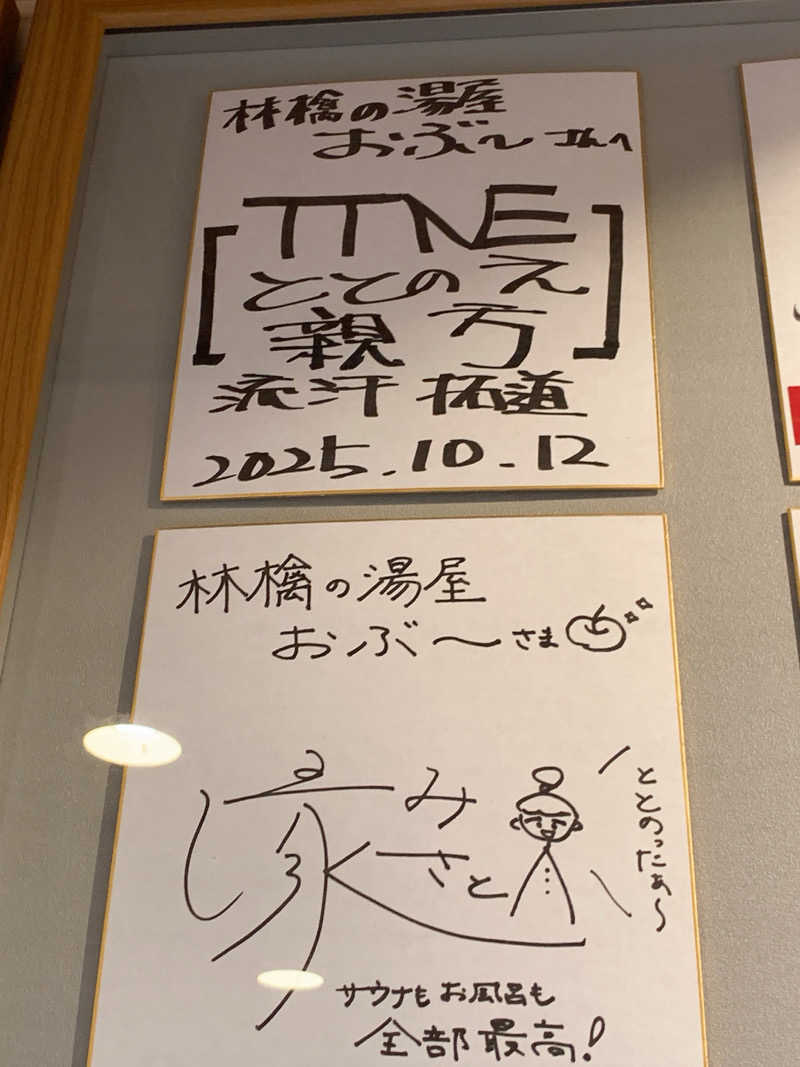 林檎の湯屋
おぶ〜さんへ
TTNE
ととのえ
親方
流汗拓道
2025.10.12
林檎の湯屋
おぶ〜さま
みさと
ととのったぁ〜
サウナもお風呂も
全部最高!